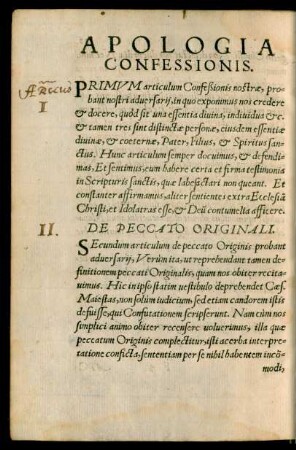 APOLOGIA
CONFESSIONIS.
I
PRIMVM articulum Confeßionis nostræ, pro-
bant nostri aduersarij, in quo exponimus nos credere
& docere, quòd sit una essentia diuina, indiuidua &c.
& tamen tres sint distinctæ personæ, eiusdem essentiæ
diuinæ, & coeternæ, Pater, Filius, & Spiritus san-
ctus. Hunc articulum semper docuimus, & defendi-
mus, Et sentimus, eum habere certa et firma testimonia
in Scripturis sanctis, quæ labefactari non queant. Et
constanter affirmamus, aliter sentientes extra Ecclesiā
Christi, et Idolatras esse, & Deū contumelia afficere.
II. DE PECCATO ORIGINALI.
Secundum articulum de peccato Originis probant
aduersarij, Verùm ita, ut reprehendant tamen de-
finitionem peccati Originalis, quam nos obiter recita-
uimus. Hic in ipso statim uestibulo deprehendet Cæs.
Maiestas, non solùm iudicium, sed etiam candorem istis
defuisse, qui Confutationem scripserunt. Nam cùm nos
simplici animo obiter recensere uoluerimus, illa quæ
peccatum Originis complectitur, isti acerba interpre-
tatione conficta, sententiam per se nihil habentem incō-
modi,